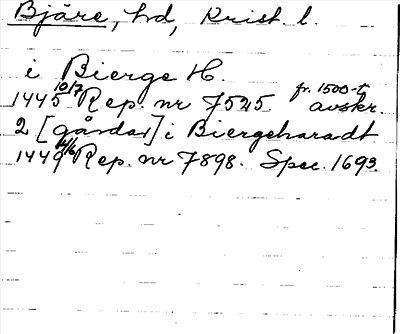 Bjäre, hd, Krist. l.
i Bierge H.
1445 10/7 Rep. nr 7525 fr. 1500-t. avskr.
2 [gårdar] i Biergeharadt
1449 Rep. nr 7898. Spec. 1693.